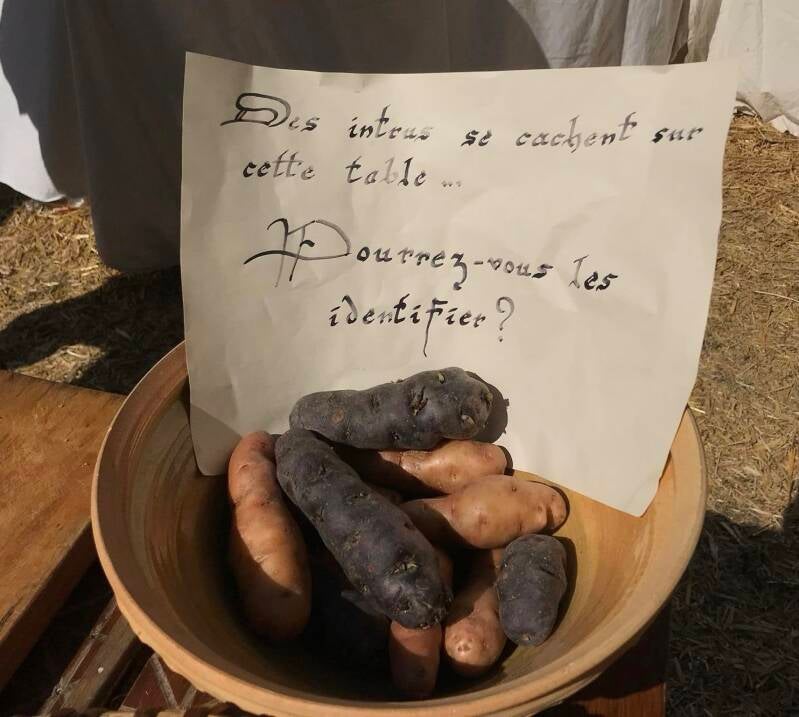 Des intrus se cachent sur
cette table...
Pourrez-vous les
identifier ?